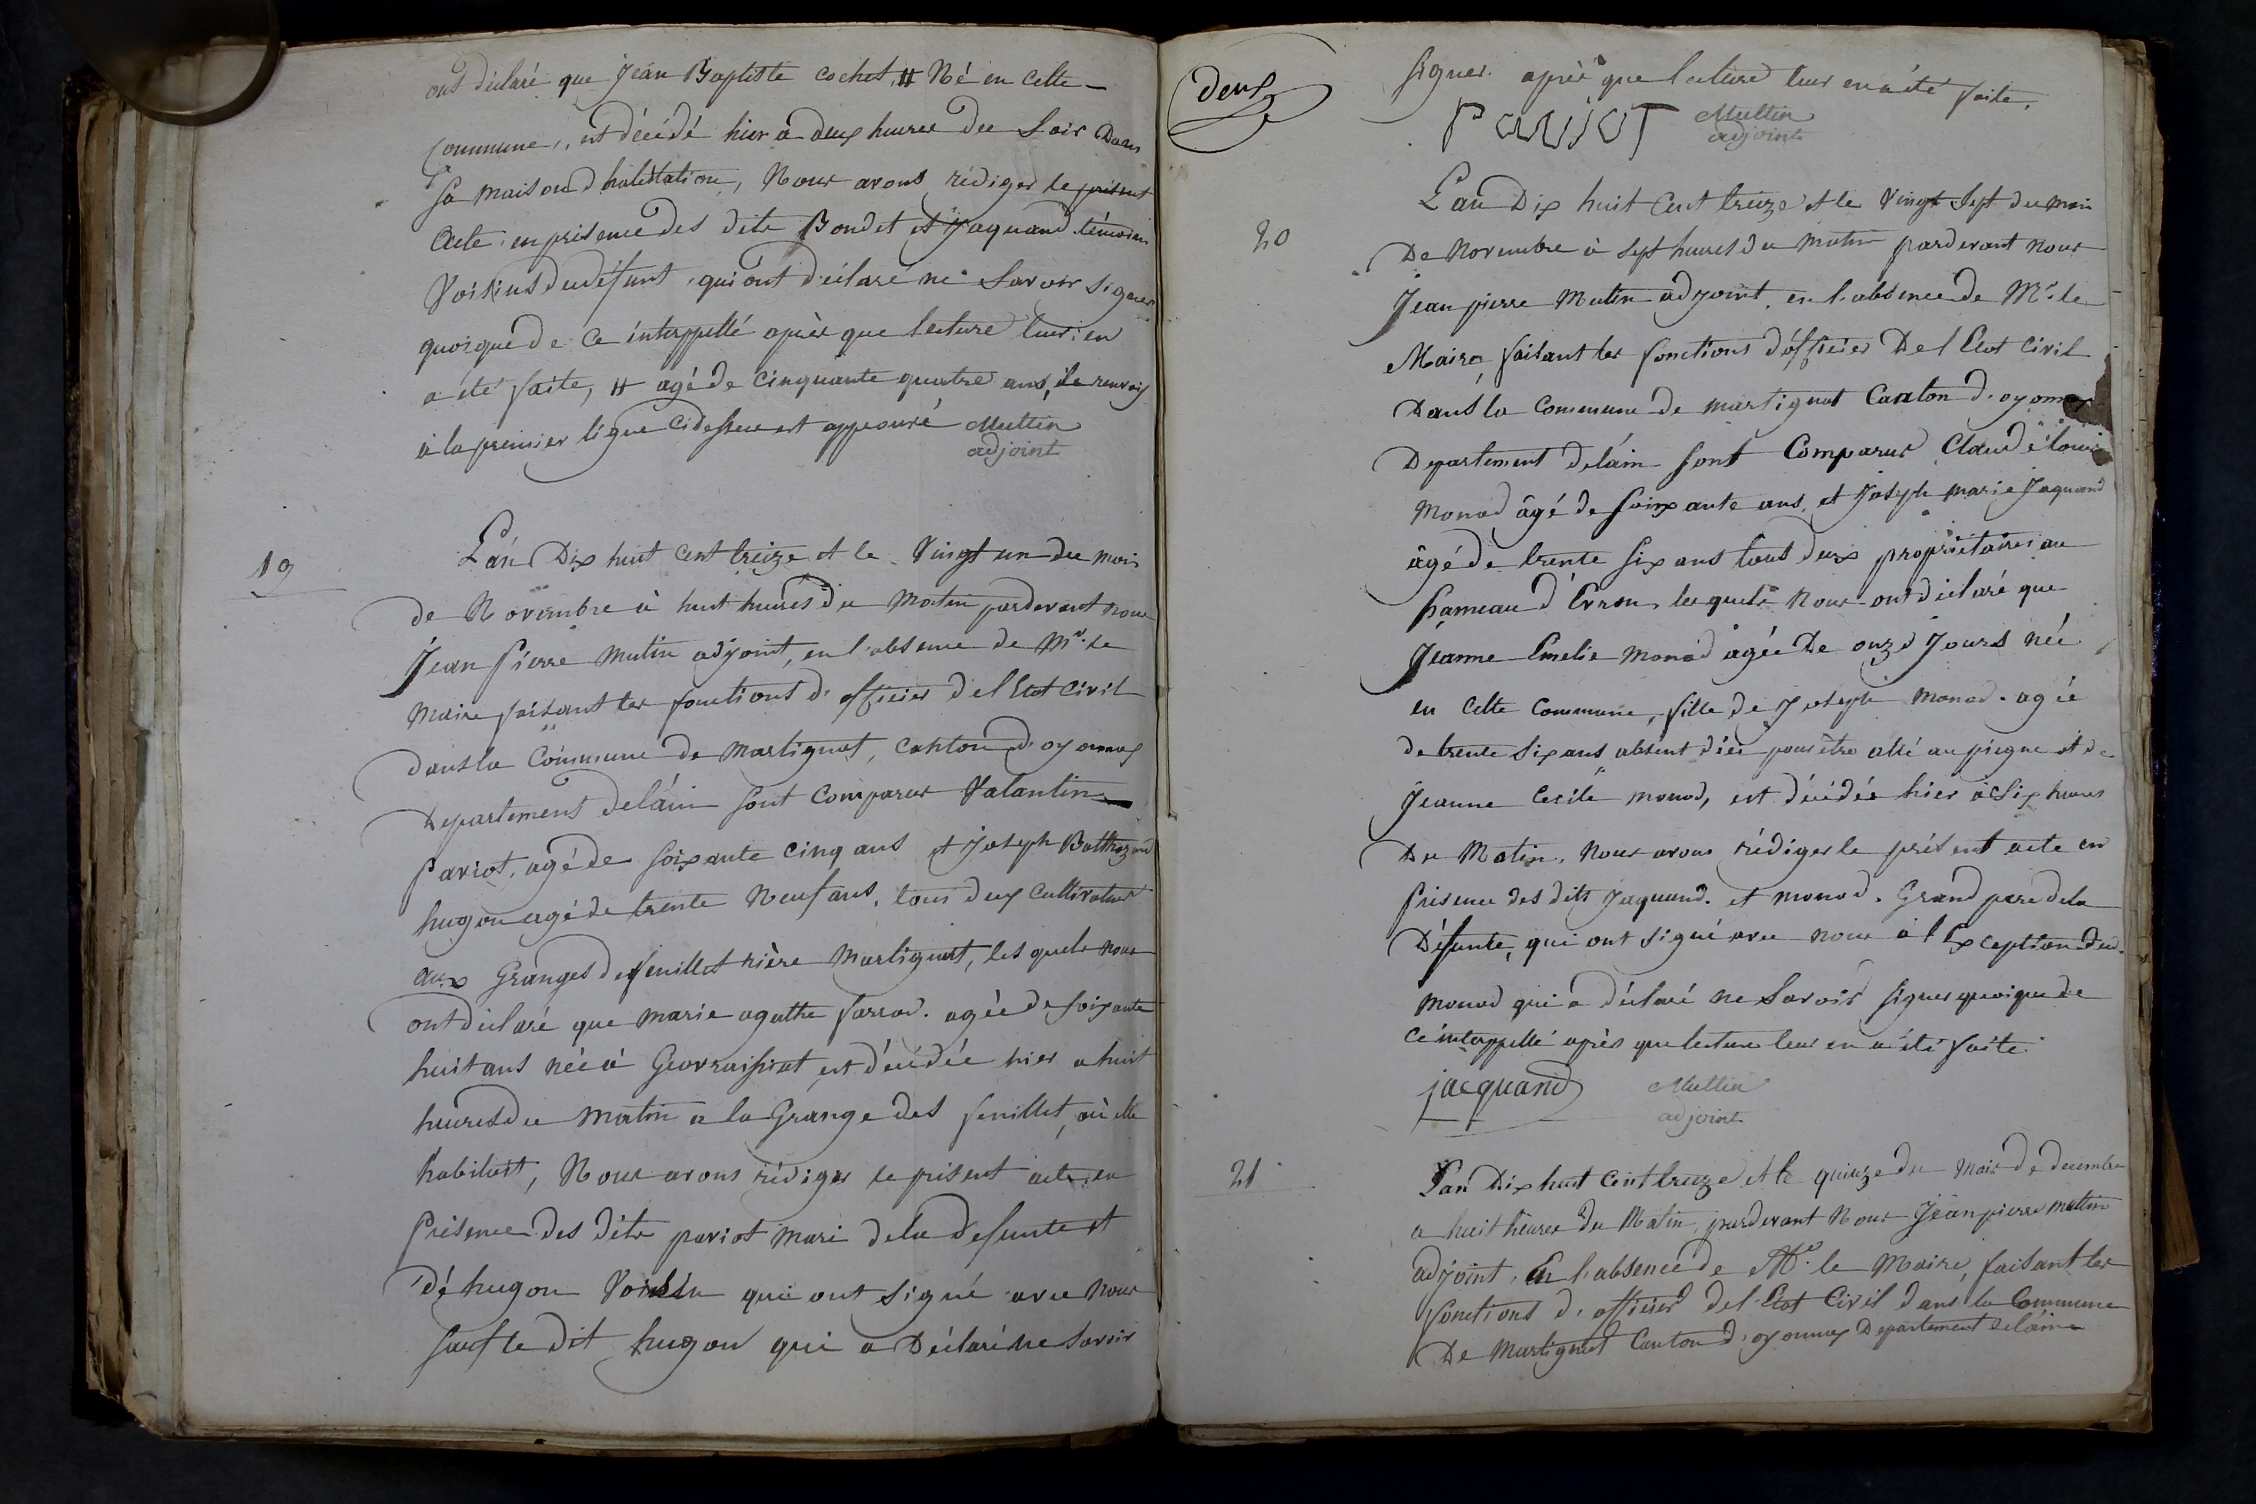 ont déclaré que Jean Baptiste cochet, # Né en cette
commune, est décédé hier à deux heures du Soir Dans
Sa maison d'habitation, Nous avons rédiger le présent
acte en présence des dits Bondet et Jaquand témoins
Voisins du défunt, qui ont déclaré ne Savoir Signer
quoique de ce interppellé après que lecture leur en
a été faite, # agé de cinquante quatre ans, le renvoy
à la premier ligne Cidessus est approuvé Muttin
adjoint
19
L'an Dix huit cent treize et le Vingt un du mois
de Novembre à huit heures du Matin pardevant nous
Jean Pierre Mutin adjoint, en l'absence de Mr. le
Maire faisant les fonctions d'officier del Etat Civil
dans la Commune de Martignat, canton d'oyonnax
Departement delain Sont Comparus Valantin
Pariot, agé de Soixante cinq ans et Joseph Balthazard
hugon agé de trente Neuf ans, tous deux Cultivateurs
aux Granges de feuillet rière Martignat, les quels nous
ont déclaré que Marie agathe farrod. agée de Soixante
huit ans née à Geovraissiat est décédée hier a huit
heures du Matin a la Grange des feuillet, où elle
habitait, Nous avons rédiger le présent acte en
Présence des dits pariot Mari dela défunte et
dé hugon Voisin qui ont Signé avec Nous
Sauf le dit hugon qui a Déclaré ne Savoir
deux
Signer. après que lecture leur en a été faite.
PARIOT Muttin
adjoint
20
L'an Dix huit Cent treize et le Vingt Sept du mois
De Novembre à Sept heures du Matin pardevant nous
Jean pierre Mutin adjoint, en l'absence de Mr. le
Maire, faisant les fonctions d'officier De l Etat Civil
Dans la Commune de martignat Canton d'oyonnax
Departement delain Sont Comparus Claude Louis
Monod âgé de Soixante ans, et Joseph Marie Jaquand
âgé de trente Six ans tous deux propriétaires au
hameau d'Evron, les quels Nous ont déclaré que
Jeanne Emelie Monod agée De onze Jours née
en Cette Commune, fille de Joseph Monod. agée
de trente Six ans, absent d'ici pour être allé au peigne et de
Jeanne Cecile monod, est décédée hier à Six heures
Du Matin, Nous avons rédiger le présent acte en
Présence des dits Jaquand. et monod. Grand pere dela
Défunte, qui ont Signé avec nous à l'Exception dud.
Monod qui a déclaré ne Savoir Signer quoique de
ce interppellé après que lecture leur en a été faite.
jacquand Muttin
adjoint
21
L'an Dix huit Cent treize et le quinze du Mois De decembre
a huit heures du Matin, pardevant Nous Jean pierre Muttin
adjoint, En l'absence de Mr. le Maire, faisant les
fonctions d'officier del Etat Civil dans la Commune
De Martignat Canton d'oyonnax Departement delain